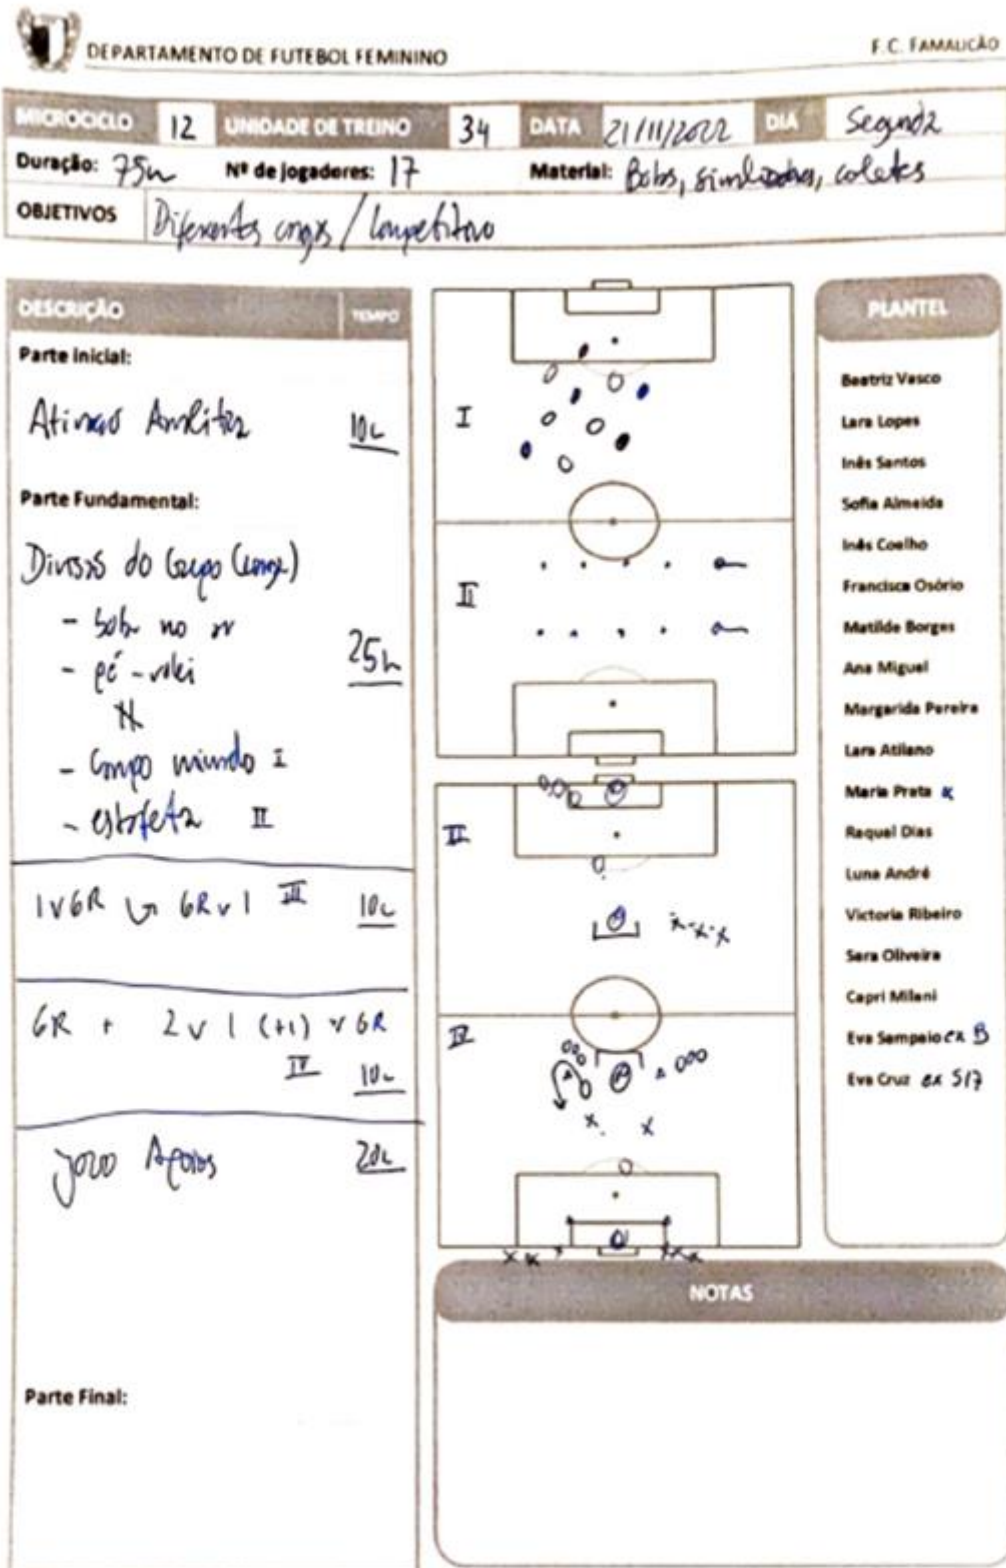 DEPARTAMENTO DE FUTEBOL FEMININO
F.C. FAMALICÃO
MICROCICLO 12 UNIDADE DE TREINO 34 DATA 21/11/2022 DIA Segunda
Duração: 75m Nº de jogadores: 17 Material: Bolas, coletes
OBJETIVOS Diferentes / Competitivo
DESCRIÇÃO TEMPO
Parte inicial:
10
Parte Fundamental:
do Grupo
- no
- pé - volei
25
- mundo I
- estafeta II
1v6R 6Rv1 III 10
6R + 2v1 (+1) v 6R
IV 10
Jogo Apoios 20
Parte Final:
I
II
II
IV
PLANTEL
Beatriz Vasco
Lara Lopes
Inês Santos
Sofia Almeida
Inês Coelho
Francisca Osório
Matilde Borges
Ana Miguel
Margarida Pereira
Lara Atilano
Maria Prata x
Raquel Dias
Luna André
Victoria Ribeiro
Sara Oliveira
Capri Milani
Eva Sampaio ex B
Eva Cruz ex S17
NOTAS